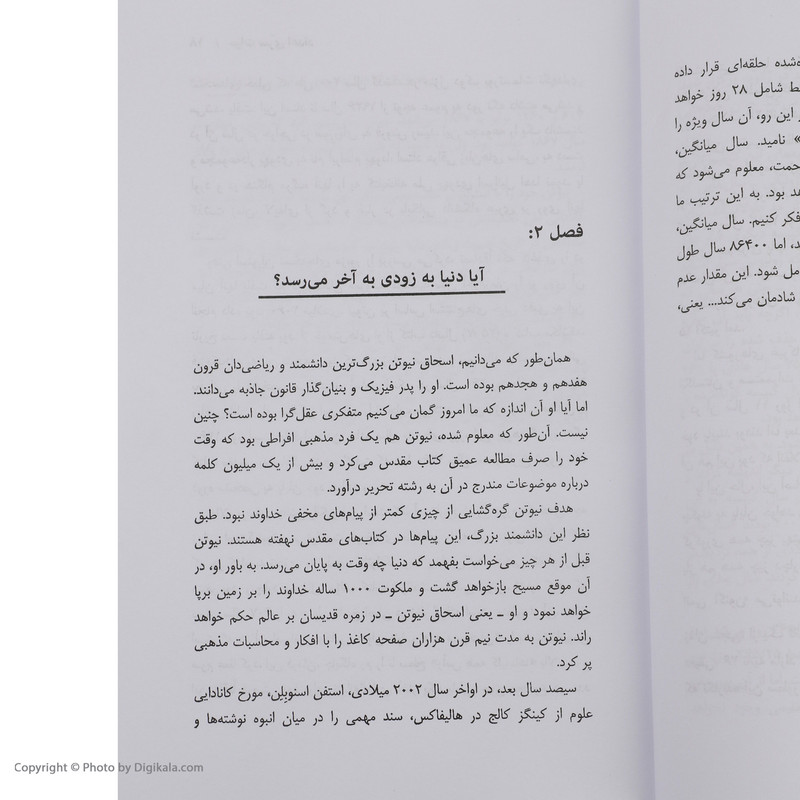 فصل ۲:
آیا دنیا به زودی به آخر می‌رسد؟
همان‌طور که می‌دانیم، اسحاق نیوتن بزرگ‌ترین دانشمند و ریاضی‌دان قرون
هفدهم و هجدهم بوده است. او را پدر فیزیک و بنیان‌گذار قانون جاذبه می‌دانند.
اما آیا او آن اندازه که ما امروز گمان می‌کنیم متفکری عقل‌گرا بوده است؟ چنین
نیست. آن‌طور که معلوم شده، نیوتن هم یک فرد مذهبی افراطی بود که وقت
خود را صرف مطالعه عمیق کتاب مقدس می‌کرد و بیش از یک میلیون کلمه
درباره موضوعات مندرج در آن به رشته تحریر درآورد.
هدف نیوتن گره‌گشایی از چیزی کمتر از پیام‌های مخفی خداوند نبود. طبق
نظر این دانشمند بزرگ، این پیام‌ها در کتاب‌های مقدس نهفته هستند. نیوتن
قبل از هر چیز می‌خواست بفهمد که دنیا چه وقت به پایان می‌رسد. به باور او، در
آن موقع مسیح بازخواهد گشت و ملکوت ۱۰۰۰ ساله خداوند را بر زمین برپا
خواهد نمود و او ـ یعنی اسحاق نیوتن ـ در زمره قدیسان بر عالم حکم خواهد
راند. نیوتن به مدت نیم قرن هزاران صفحه کاغذ را با افکار و محاسبات مذهبی
پر کرد.
سیصد سال بعد، در اواخر سال ۲۰۰۲ میلادی، استفن اسنوبلِن، مورخ کانادایی
علوم از کینگز کالج در هالیفاکس، سند مهمی را در میان انبوه نوشته‌ها و
شده حلقه‌ای قرار داده
شامل ۲۸ روز خواهد
این رو، آن سال ویژه را
» نامید. سال میانگین،
معلوم می‌شود که
بود. به این ترتیب ما
فکر کنیم. سال میانگین،
اما ۸۶۴۰۰ سال طول
شود. این مقدار عدم
شادمان می‌کند... یعنی،
Copyright © Photo by Digikala.com